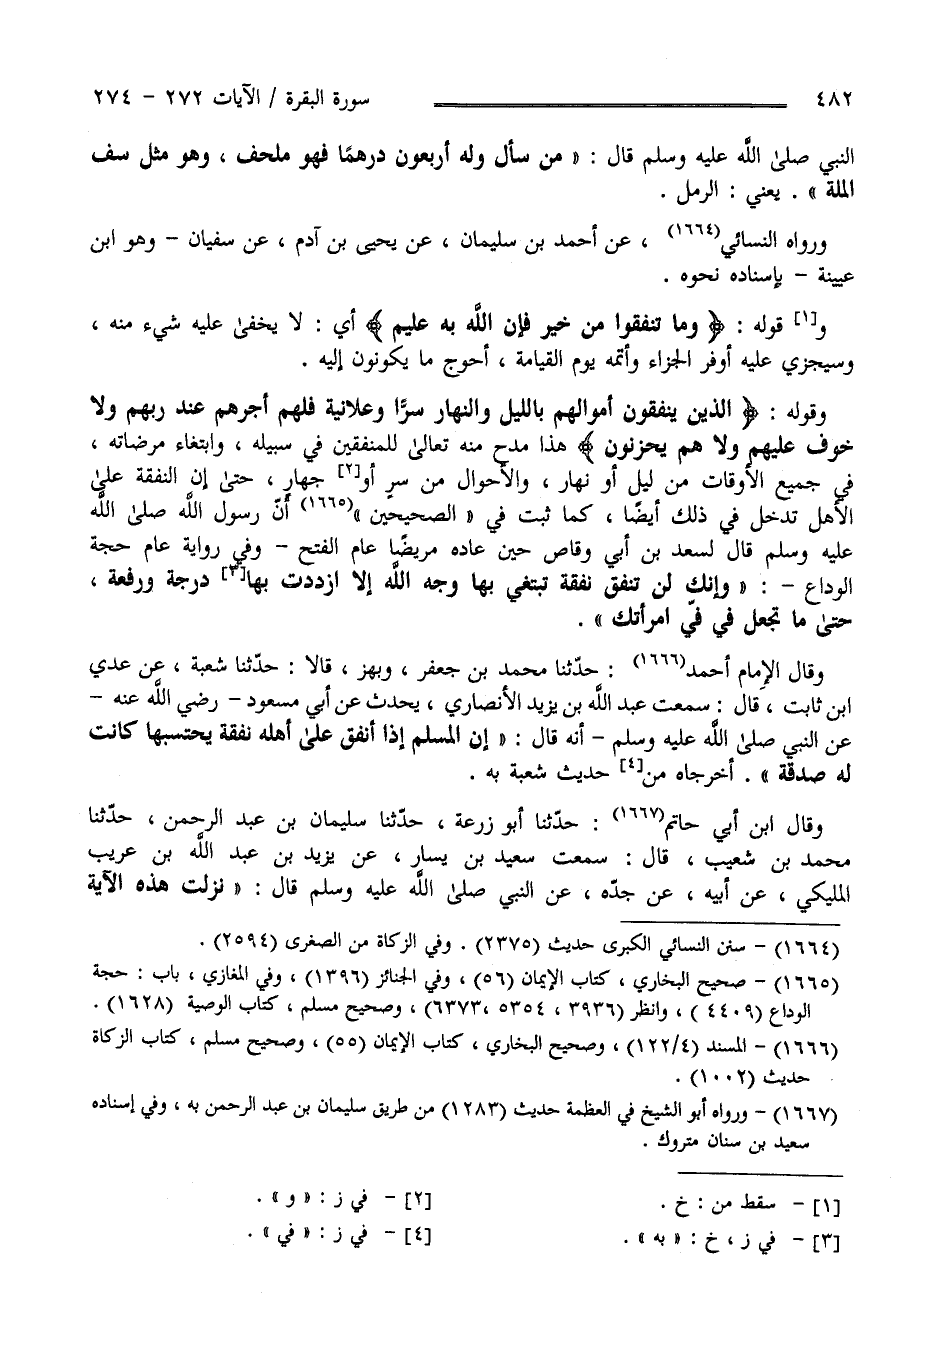 ٤٨٢ سورة البقرة / الآيات ٢٧٢ - ٢٧٤
النبي صلىٰ اللَّه عليه وسلم قال : « من سأل وله أربعون درهمًا فهو ملحف ، وهو مثل سف
الملة » . يعني : الرمل .
ورواه النسائي(١٦٦٤) ، عن أحمد بن سليمان ، عن يحيى بن آدم ، عن سفيان - وهو ابن
عيينة - بإسناده نحوه .
و[١] قوله : ﴿ وما تنفقوا من خير فإن اللَّه به عليم ﴾ أي : لا يخفىٰ عليه شيء منه ،
وسيجزي عليه أوفر الجزاء وأتمّه يوم القيامة ، أحوج ما يكونون إليه .
وقوله : ﴿ الذين ينفقون أموالهم بالليل والنهار سرًّا وعلانية فلهم أجرهم عند ربهم ولا
خوف عليهم ولا هم يحزنون ﴾ هذا مدح منه تعالىٰ للمنفقين في سبيله ، وابتغاء مرضاته ،
في جميع الأوقات من ليل أو نهار ، والأحوال من سرٍ أو[٢] جهارٍ ، حتىٰ إن النفقة علىٰ
الأهل تدخل في ذلك أيضًا ، كما ثبت في « الصحيحين »(١٦٦٥) أنّ رسول اللَّه صلىٰ اللَّه
عليه وسلم قال لسعد بن أبي وقاص حين عاده مريضًا عام الفتح - وفي رواية عام حجة
الوداع - : « وإنك لن تنفق نفقة تبتغي بها وجه اللَّه إلا ازددت بها[٣] درجة ورفعة ،
حتىٰ ما تجعل في فيّ امرأتك » .
وقال الإِمام أحمد(١٦٦٦) : حدّثنا محمد بن جعفر ، وبهز ، قالا : حدّثنا شعبة ، عن عدي
ابن ثابت ، قال : سمعت عبد اللَّه بن يزيد الأنصاري ، يحدث عن أبي مسعود - رضي اللَّه عنه -
عن النبي صلىٰ اللَّه عليه وسلم - أنه قال : « إن المسلم إذا أنفق علىٰ أهله نفقة يحتسبها كانت
له صدقة » . أخرجاه من[٤] حديث شعبة به .
وقال ابن أبي حاتم(١٦٦٧) : حدّثنا أبو زرعة ، حدّثنا سليمان بن عبد الرحمن ، حدّثنا
محمد بن شعيب ، قال : سمعت سعيد بن يسار ، عن يزيد بن عبد اللَّه بن عريب
المليكي ، عن أبيه ، عن جدّه ، عن النبي صلىٰ اللَّه عليه وسلم قال : « نزلت هذه الآية
(١٦٦٤) - سنن النسائي الكبرى حديث (٢٣٧٥) . وفي الزكاة من الصغرى (٢٥٩٤) .
(١٦٦٥) - صحيح البخاري ، كتاب الإيمان (٥٦) ، وفي الجنائز (١٣٩٦) ، وفي المغازي ، باب : حجة
الوداع (٤٤٠٩ ) ، وانظر (٣٩٣٦ ، ٥٣٥٤ ،٦٣٧٣) ، وصحيح مسلم ، كتاب الوصية (١٦٢٨) .
(١٦٦٦) - المسند (١٢٢/٤) ، وصحيح البخاري ، كتاب الإيمان (٥٥) ، وصحيح مسلم ، كتاب الزكاة
حديث (١٠٠٢) .
(١٦٦٧) - ورواه أبو الشيخ في العظمة حديث (١٢٨٣) من طريق سليمان بن عبد الرحمن به ، وفي إسناده
سعيد بن سنان متروك .
[١] - سقط من : خ . [٢] - في ز : « و » .
[٣] - في ز ، خ : « به » . [٤] - في ز : « في » .